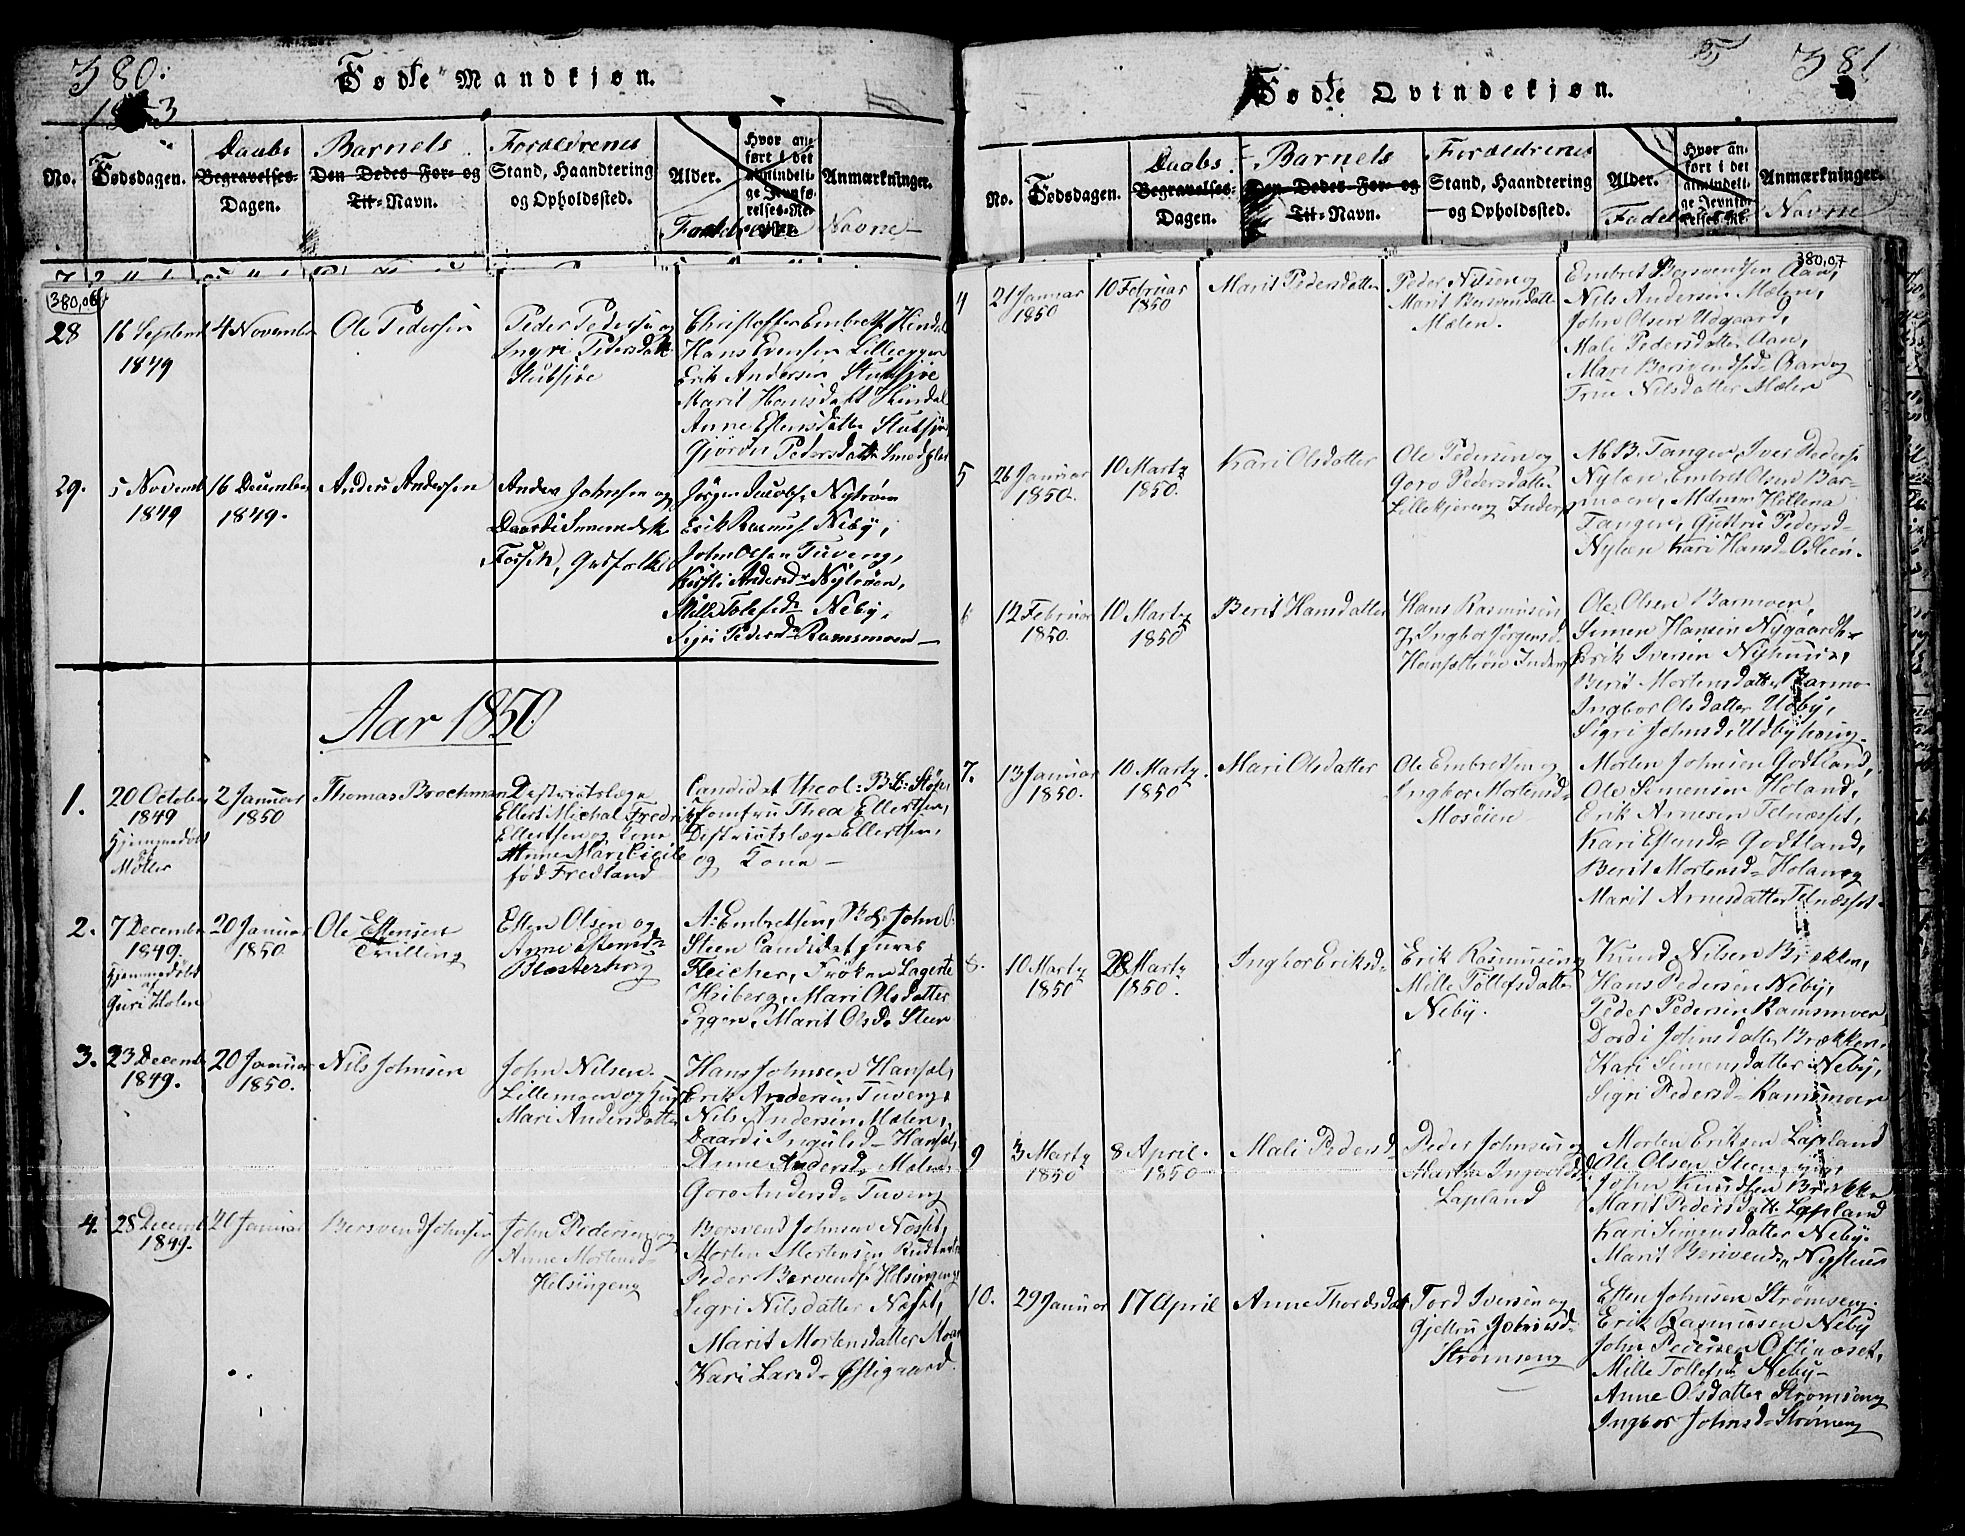 380.
Fødte Mandkjøn.
1843
No.
Fødsdagen.
Daabs
Begravelses-
Dagen.
Barnets
Den Dødes For- og
Til-Navn.
Forældrenes
Stand, Haandtering
og Opholdssted.
Alder.
Hvor an-
ført i det
almindeli-
ge Jevnfø-
relses-Re-
gister.
Anmærkninger.
Faddernes Navne
380,06
28
16 Septemb
1849
4 November
Ole Pedersen
Peder Pedersen og
Ingri Pedersdatt
Stubsjøe
Christoffer Embrets Hindal
Hans Evensen Lilleeggen
Erik Andersen Stubsjøe
Marit Hansdatt Hindal
Anne Estensdatter Stubsjøe
Gjøron Pedersdatt Smedplas
29.
5 Novemb
1849
16 December
1849.
Anders Andersen
Anders Johnsen og
Daardi Simensdtr
Fossen, Gadfolk
Jörgen Jacobs. Nytrøen
Erik Rasmus Neby,
John Olsen Tuveng,
Kirsti Andersd Nytrøen,
Mille Tolefsd Neby,
Sigri Pedersd Ramsmoen
Aar 1850
1.
20 October
1849
Hjemmedøbt
af
Møller
2 Januar
1850
Thomas Brochman
Destrictslæge
Ellert Michal Fredrik
Ellertsen og Kone
Anne Marie Cicile
fød Fredland
Candidat theol: B. L: Støp,
Jomfru Thea Ellertsen,
Distriktslæge Ellertsen,
og Kone
2.
7 Decemb
1849.
Hjemmedøbt
af
Guri Holen
20 Januar
1850.
Ole Estensen
Tvilling
Esten Olsen og
Anne Estensd
Blæsterhoug
A: Embretsen, John O:
Steen Candidat juris
Fleicher, Frøken Lagerte
Heiberg, Mari Olsdatter
Eggen, Marit Olsd Steen
3.
23 Decemb
1849.
20 Januar
1850.
Nils Johnsen
John Nilsen
Lillemoen og Hust
Mari Andersdatter
Hans Johnsen Hansæl,
Erik Andersen Tuveng,
Nils Andersen Mælen,
Daardi Ingulsd Hansæl,
Anne Andersd Mælen,
Goro Andersd Tuveng
4.
28 Decemb
1849.
20 Januar
Bersvend Johnsen
John Pedersen og
Anne Mortensd
Helsingeng
Bersvend Johnsen Næsset,
Morten Mortensen
Peder Bersvends Helsingeng
Sigri Nilsdatter Næset,
Marit Mortensdatter Moan
Kari Larsd Østigaard.
381
Fødte Qvindekjøn.
No.
Fødsdagen.
Daabs
Begravelses-
Dagen.
Barnets
Den Dødes For- og
Til-Navn.
Forældrenes
Stand, Haandtering
og Opholdssted.
Alder.
Hvor an-
ført i det
almindeli-
ge Jevnfø-
relses-Re-
Anmærkninger.
Faddernes Navne
380,07
4
21 Januar
1850
10 Februar
1850
Marit Pedersdatter
Peder Nilsen og
Marit Bersvendsdatt
Mælen.
Embret Bersvendsen Aan,
Nils Andersen Mælen,
John Olsen Udgaard,
Mali Pedersdatter Aan,
Mari Bersvendsd Aan og
Trine Nilsdatter Mælen
5
26 Januar
1850.
10 Marty
1850.
Kari Olsdatter
Ole Pedersen og
Goro Pedersdatte
Lillekjøreng Inders
M. B. Tangen, Iver Peders
Nylæn, Embret Olsen Bar-
moen, Mdme Hellena
Tangen, Gjettru Pedersd
Nylæn Kari Hansd Odleen.
6
12 Februar
1850.
10 Marty
1850
Berit Hansdatter
Hans Rasmussen
og Ingbor Jørgensd
Ole Olsen Barmoen,
Simen Hansen Nygaard
Erik Iversen Nyhuus,
Berit Mortensdatter Barmo
Ingbor Olsdatter Udby,
Sigri Johnsd Udbyhoug
7.
13 Januar
1850.
10 Marty.
1850.
Mari Olsdatter
Ole Embretsen og
Ingbor Mortensd
Mosøien
Morten Johnsen Godtland,
Ole Simensen Holand,
Erik Arnesen Telnæsset,
Kari Estensd Godtland,
Berit Mortensd Holan og
Marit Arnesdatter Telnæsset
8.
10 Marty
1850
28 Marty
1850.
Ingbor Eriksd
Erik Rasmusen og
Mille Tollefsdatter
Neby.
Knud Nilsen Brækken,
Hans Pedersen Neby,
Peder Pedersen Ramsmoen
Dordi Johnsdatter Brækken,
Kari Simensdatter Neby,
Sigri Pedersd Ramsmoen
9
3 Marty
1850
8 April.
1850
Mali Pedersd
Peder Johnsen og
Martha Ingvolds
Lapland
Morten Eriksen Lapland
Ole Olsen Steengjer,
John Knudsen Brække
Marit Pedersdatt Lapland
Kari Simensdatter Neby.
Marit Bersvends Nyhuus
10.
29 Januar
17 April
Anne Thordsdatt
Tord Iversen og
Gjettru Jacobsd
Strømseng
Esten Johnsen Strømseng.
Erik Rasmussen Neby
John Pedersen Ostinæset,
Mille Tollefsd Neby
Anne Olsdatter Strømseng
Ingbor Johnsd Strømeng